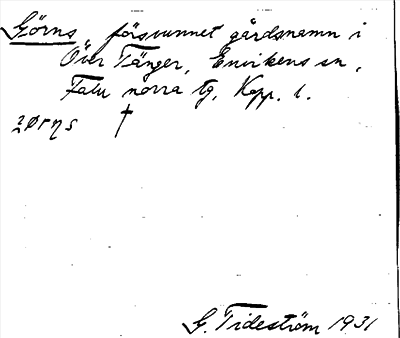 Görns, försvunnet gårdsnamn i
Över Tänger, Envikens sn,
Falu norra tg, Kopp. l.
²ørŋs †
G. Tideström 1931